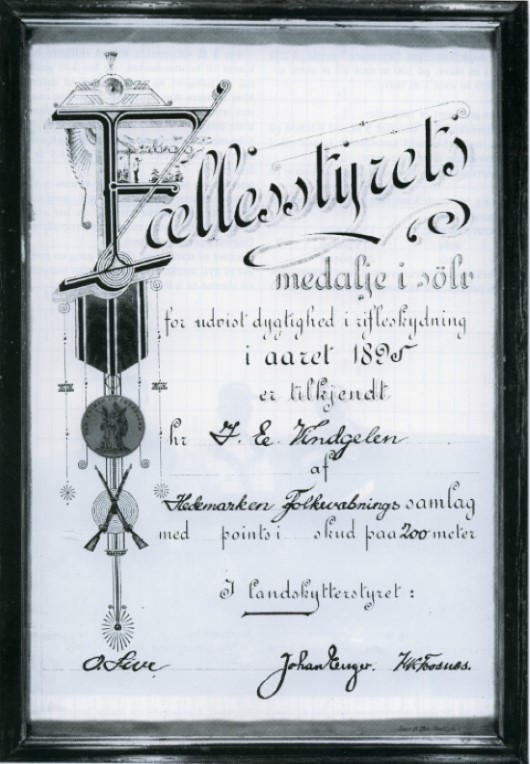 Fællesstyrets
medalje i sölv
for udvist dygtighed i rifleskydning
i aaret 1895
er tilkjendt
hr I. E. Vindgelen
af
Hedemarken Folkevæbnings samlag
med points i skud paa 200 meter
I landskytterstyret:
O. Five Johan Enger. H.K. Foosnæs.